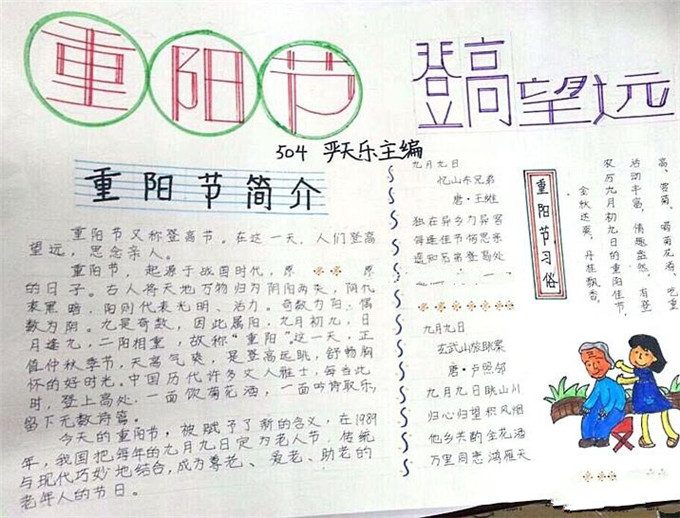 重阳节
登高望远
504 严天乐主编
重阳节简介
重阳节又称登高节。在这一天,人们登高
望远,思念亲人。
重阳节,起源于战国时代,原 原
的日子。古人将天地万物归为阴阳两类,阴代
表黑暗,阳则代表光明、活力。奇数为阳,偶
数为阴。九是奇数,因此属阳,九月初九,日
月逢九,二阳相重,故称“重阳”。这一天,正
值仲秋季节,天高气爽,是登高远眺,舒畅胸
怀的好时光。中国历代许多文人雅士,每当此
时,登上高处,一面饮菊花酒,一面吟诗取乐,
留下无数诗篇。
今天的重阳节,被赋予了新的含义,在1989
年,我国把每年的九月九日定为老人节,传统
与现代巧妙地结合,成为尊老、爱老、助老的
老年人的节日。
九月九日
忆山东兄弟
唐·王维
独在异乡为异客
每逢佳节倍思亲
遥知兄弟登高处
九月九日
玄武山旅眺
唐·卢照邻
九月九日眺山川
归心归望积风烟
他乡共酌金花酒
万里同悲鸿雁天
重阳节习俗
金秋送爽,丹桂飘香,
农历九月初九日的重阳佳节,
活动丰富,情趣盎然,有登
高、赏菊、喝菊花酒、吃重